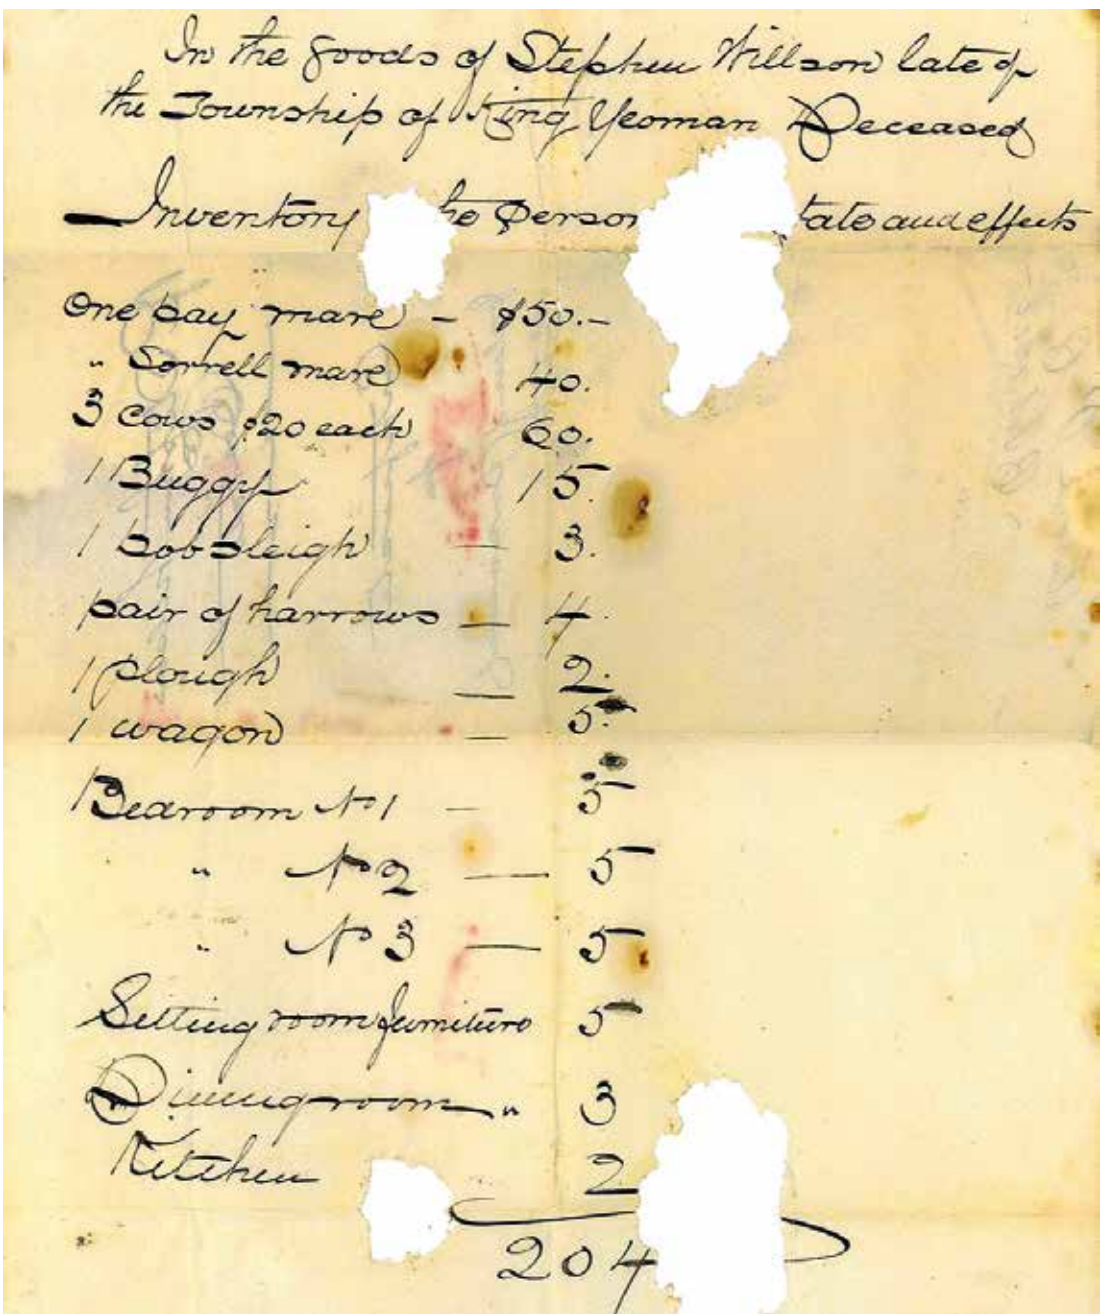 In the goods of Stephen Willson late of
the Township of King Yeoman Deceased
Inventory he Person tate and effects
One bay mare - $50.-
" Sorrell mare 40.
3 Cows $20 each 60.
1 Buggy 15.
1 bobsleigh — 3.
pair of harrows — 4.
1 plough — 2.
1 wagon — 5.
Bedroom No 1 — 5
" No 2 — 5
" No 3 — 5
Sitting room furniture 5
Diningroom " 3
Kitchen 2
204